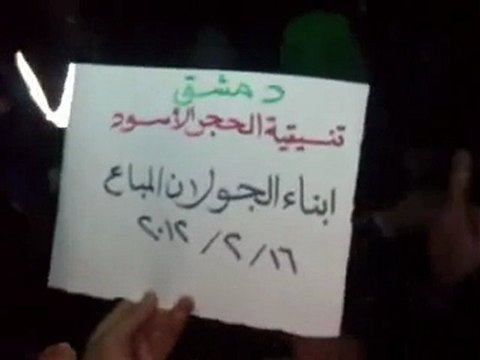 دمشق
تنسيقية الحجر الأسود
ابناء الجولان المباع
١٦/٢/٢٠١٢